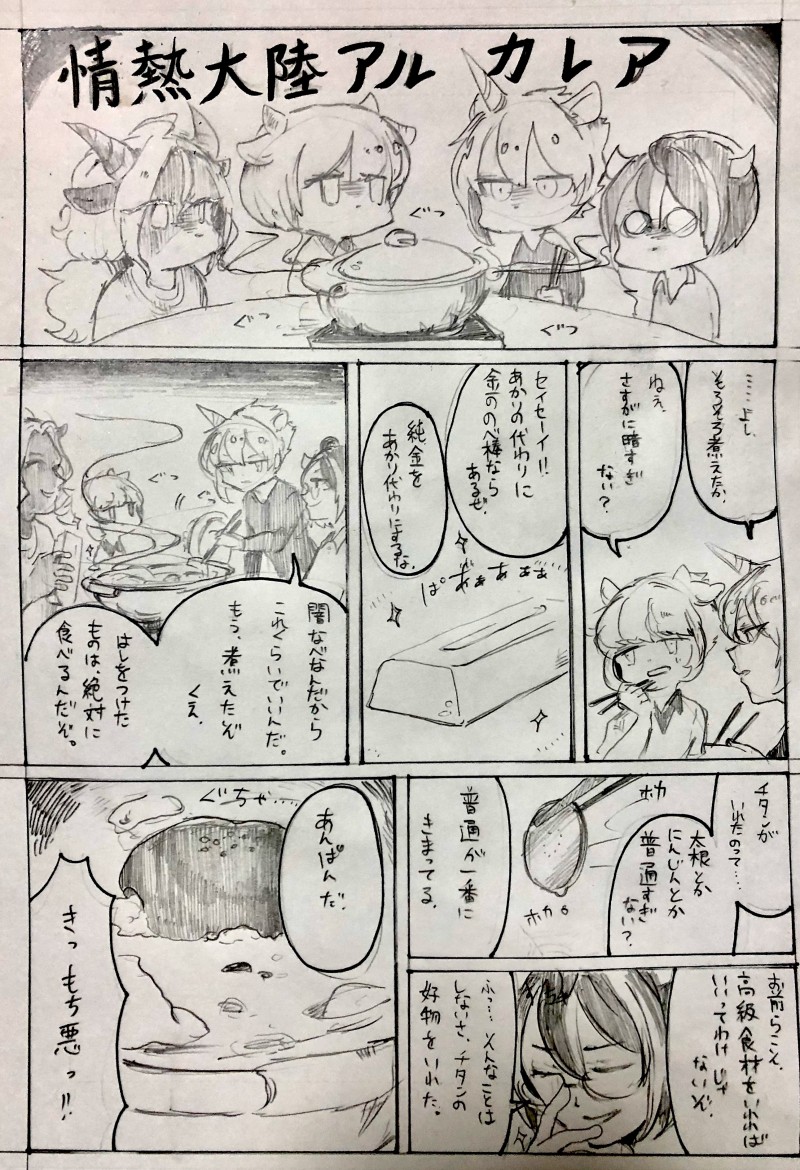 情熱大陸アルカレア
ぐつ
ぐつ
ぐつ
……よし、
そろそろ煮えたか。
ねえ、
さすがに暗すぎ
ない?
セイセーイ!!
あかりの代わりに
金ののべ棒なら
あるぜ。
純金を
あかり代わりにするな。
ぱあぁぁぁぁ
闇なべなんだから
これぐらいでいいんだ。
もう、煮えたぞ
くえ。
はしをつけた
ものは、絶対に
食べるんだぞ。
チタンが
いれたのって…、
大根とか
にんじんとか
普通すぎ
ない?
ホカ
ホカ
普通が一番に
きまってる。
お前らこそ、
高級食材をいれれば
いいってわけじゃ
ないぞ。
ふっ…、そんなことは
しないさ、チタンの
好物をいれた。
ぐちゃ……
あんぱんだ。
きっもち悪っ!!